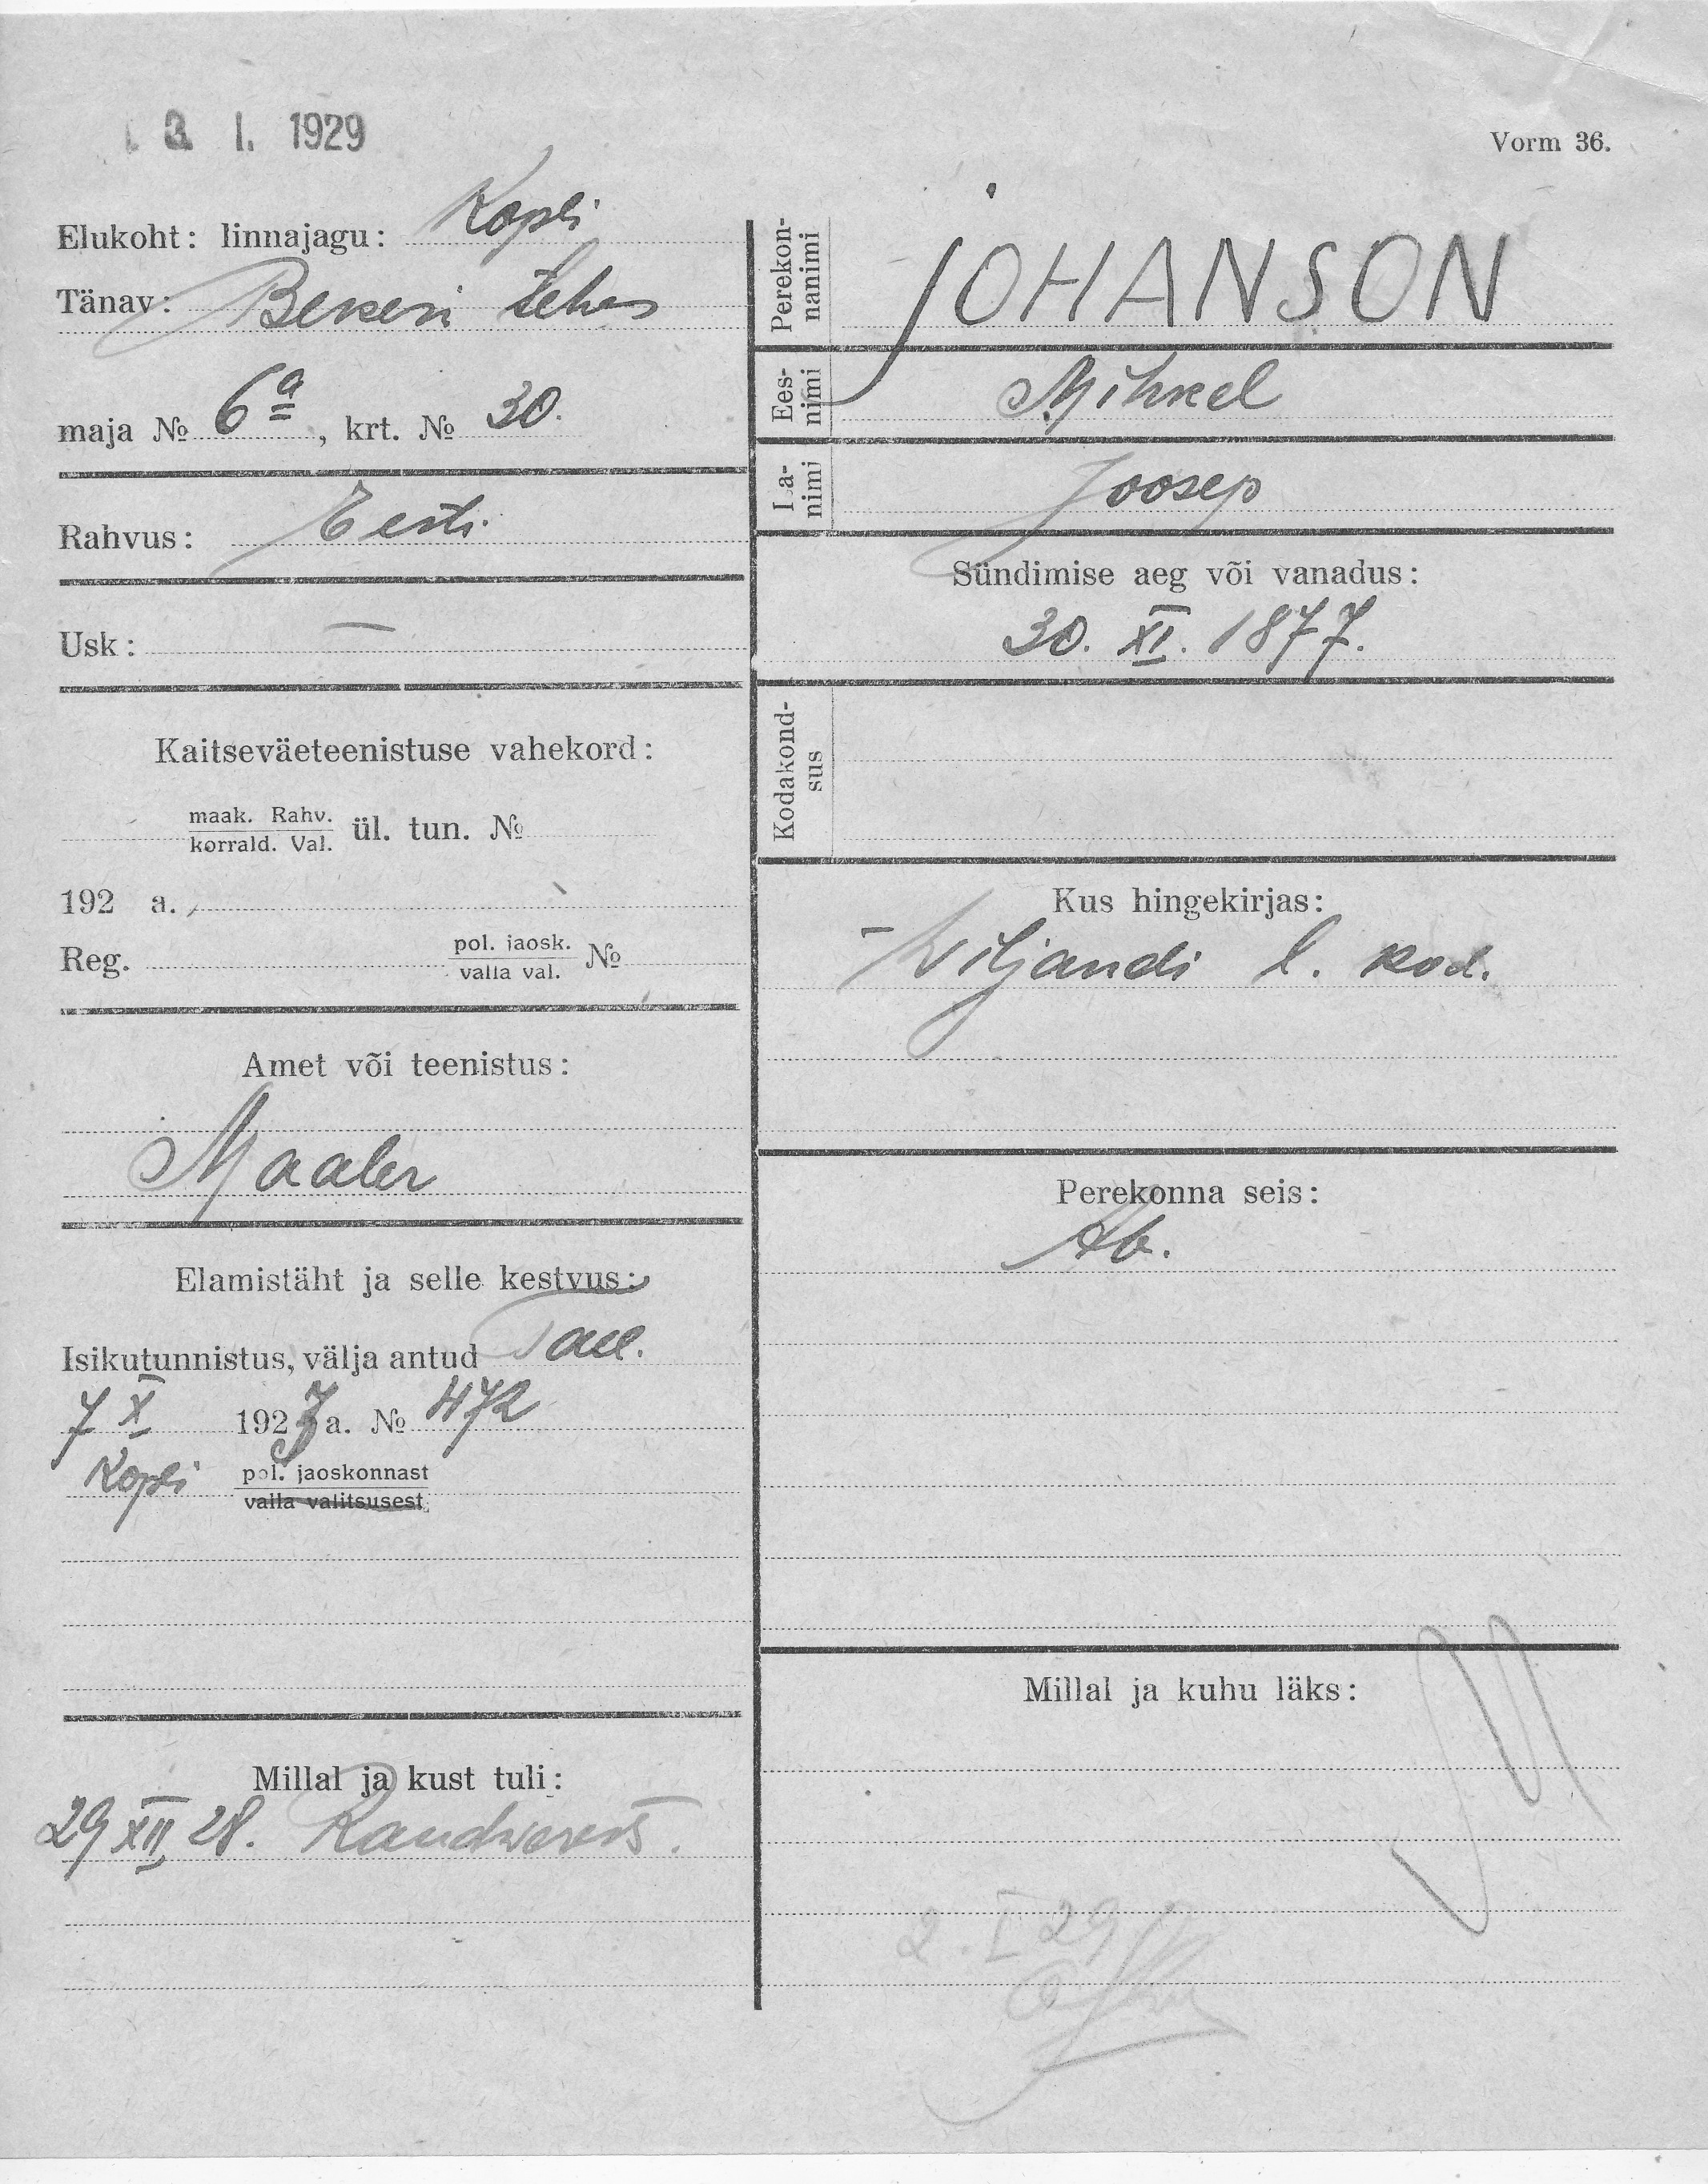 3 I. 1929
Vorm 36.
Elukoht: linnajagu: Kopli
Tänav: Bekeri tehas
maja № 6a, krt. № 30.
Rahvus: Eesti
Usk: —
Kaitseväeteenistuse vahekord:
maak. Rahv.
korrald. Val. ül. tun. №
192 a.
Reg. pol. jaosk.
valla val. №
Amet või teenistus:
Maaler
Elamistäht ja selle kestvus:
Isikutunnistus, välja antud Tall.
7 X 1927 a. № 472
Kopli pol. jaoskonnast
valla valitsusest
Millal ja kust tuli:
29 XII 28.
Perekon-
nanimi
JOHANSON
Ees-
nimi
Mihkel
Isa-
nimi
Joosep
Sündimise aeg või vanadus:
30. XI. 1877.
Kodakond-
sus
Kus hingekirjas:
Wiljandi l. kod.
Perekonna seis:
Ab.
Millal ja kuhu läks:
2. I 29